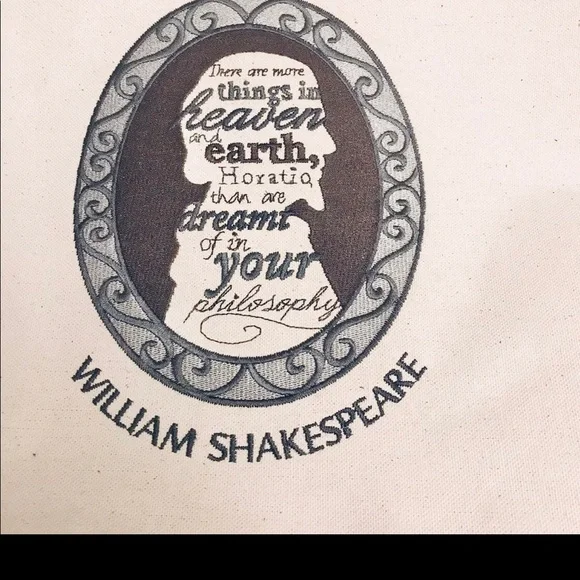 There are more
things in
heaven
and
earth,
Horatio
than are
dreamt
of in
your
philosophy
WILLIAM SHAKESPEARE